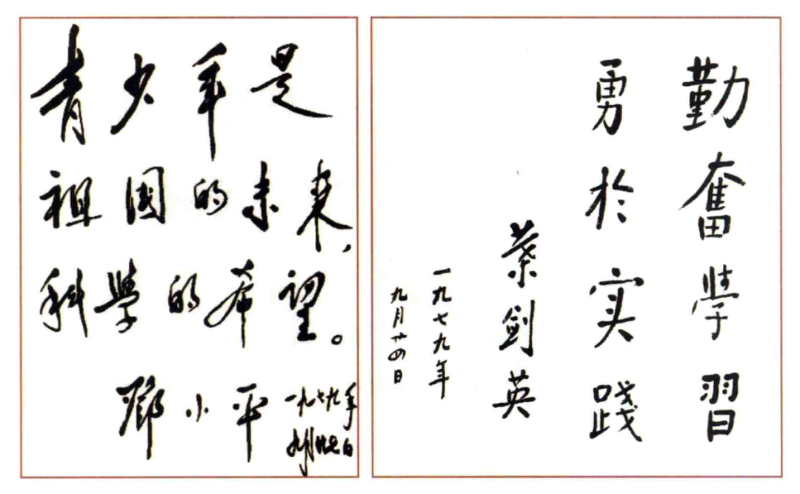 青少年是
祖國的未来，
科學的希望。
鄧小平
一九七九年
九月廿七日
勤奮學習
勇於实踐
葉剑英
一九七九年
九月廿四日